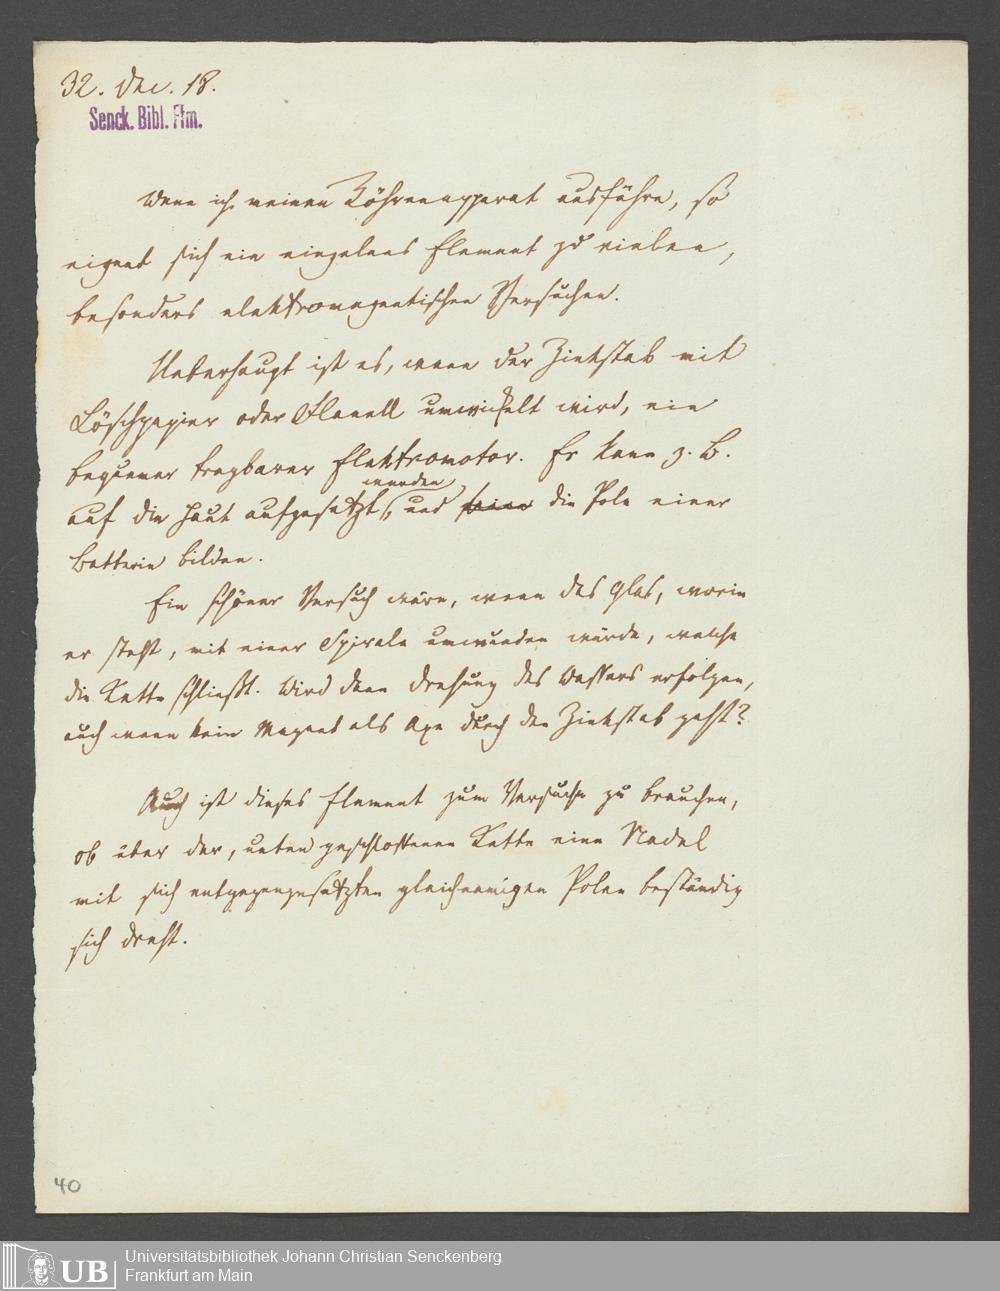 32. Dec. 18.
Senck. Bibl. Ffm.
Wenn ich meinen Röhrenapparat ausführe, so
eignet sich ein einzelnes Element zu vielen,
besonders elektromagnetischen Versuchen.
Ueberhaupt ist es, wenn der Zinkstab mit
Löschpapier oder Flanell umwickelt wird, ein
bequemer tragbarer Elektromotor. Er kann z. B.
werden
auf die Haut aufgesetzt, und die Pole einer
Batterie bilden.
Ein schöner Versuch wäre, wenn das Glas, worin
er steht, mit einer Spirale umwunden würde, welche
die Kette schließt. Wird dann Drehung des Wassers erfolgen,
auch wenn kein Magnet als Axe durch den Zinkstab geht?
Auch ist dieses Element zum Versuche zu brauchen,
ob über der, unten geschlossenen Kette eine Nadel
mit sich entgegengesetzten gleichnamigen Polen beständig
sich dreht.
40
UB
Universitätsbibliothek Johann Christian Senckenberg
Frankfurt am Main